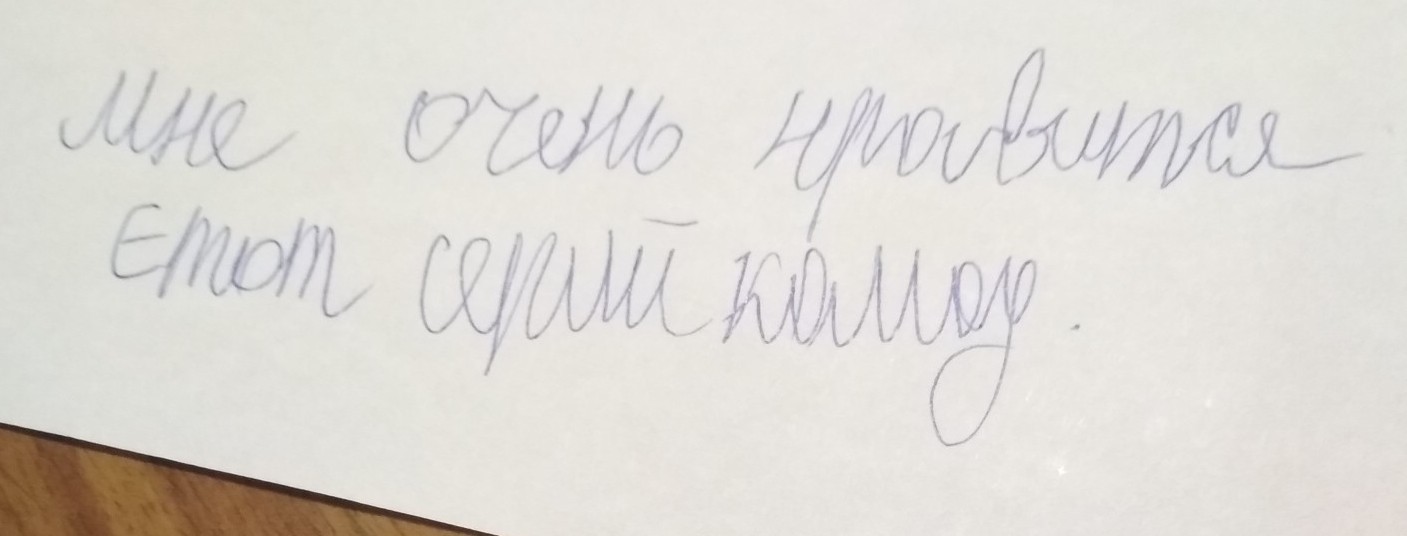 Мне очень нравится
Етот серий камод.